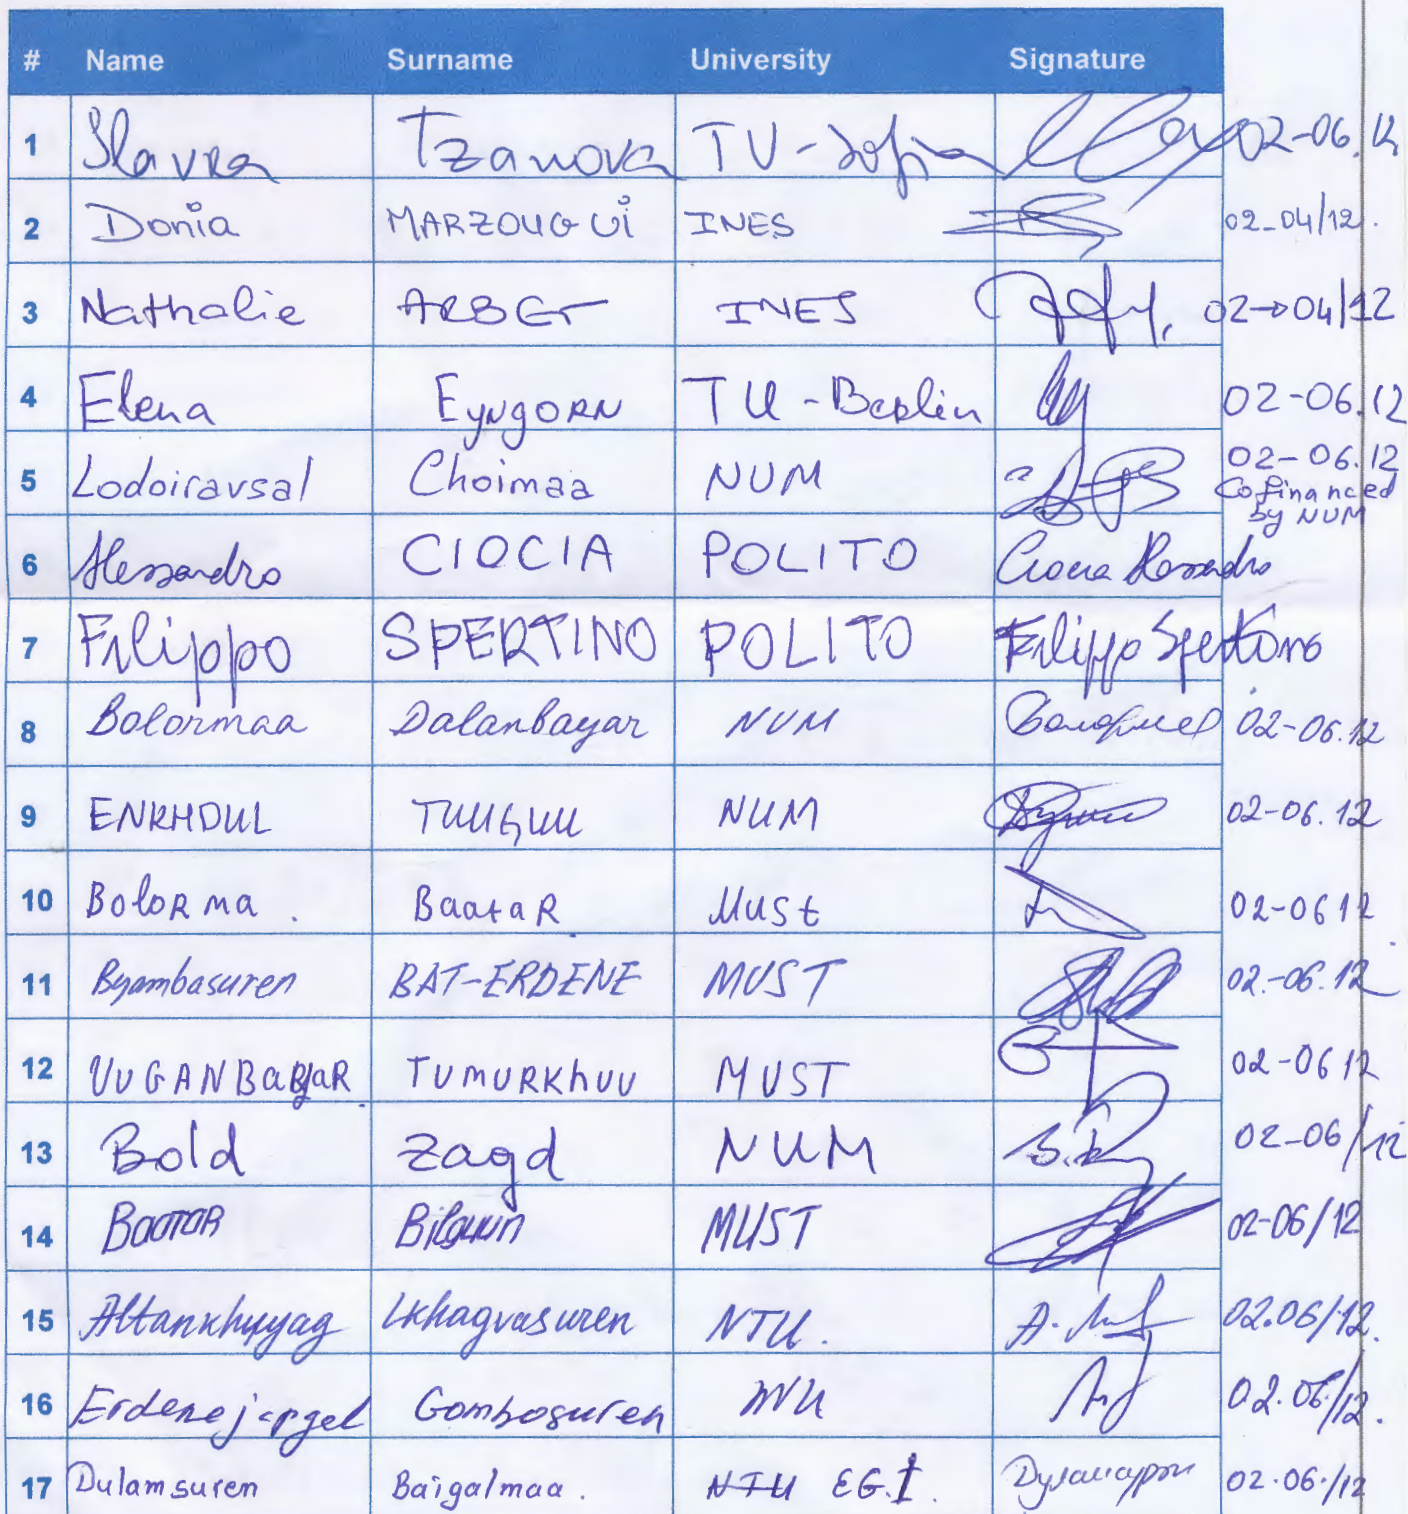 # Name Surname University Signature
1 Slavka Tzanova TU-Sofia 02-06.12
2 Donia MARZOUGUI INES 02-04/12.
3 Nathalie ARBET INES 02→04/12
4 Elena Eyngorn TU-Berlin 02-06.12
5 Lodoiravsal Choimaa NUM 02-06.12
Cofinanced
by NUM
6 Alessandro CIOCIA POLITO Ciocia Alessandro
7 Filippo SPERTINO POLITO Filippo Spertino
8 Bolormaa Dalanbayar NUM 02-06.12
9 ENKHDUL TUUGUU NUM 02-06.12
10 Bolorma. Baatar Must 02-06 12
11 Byambasuren BAT-ERDENE MUST 02.-06.12
12 UUGANBAYAR TUMURKhUU MUST 02-06 12
13 Bold Zagd NUM 02-06/12
14 Baatar Bilguun MUST 02-06/12
15 Altankhuyag Lkhagvasuren NTU. 02.06/12.
16 Erdenejargal Gombosuren 02.06/12.
17 Dulamsuren Baigalmaa. NTU EG.I. 02.06./12